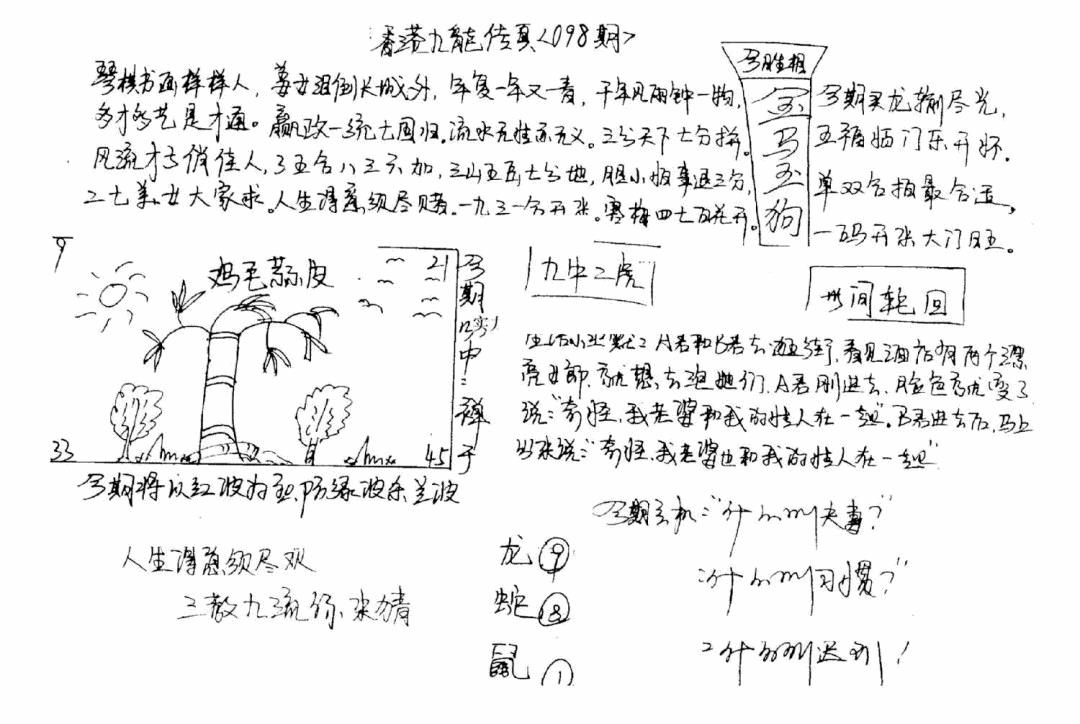 香港九龍传真<098期>
琴棋书画样样人，姜女泪倒长城外，年复一年又一春，千年风雨钟一鸣，
多才多艺是才通。嬴政一统七国归。流水无性亦无义。三分天下七分拼。
风流才子俏佳人，三五合八三六加，三山五岳七分地，胆小怕事退三分，
二七美女大家求。人生得意须尽赌。一九三一合开张。寒梅四七百花开。
今期生相
金马玉狗
今期买龙输尽光，
五福临门乐开怀。
单双合拍最合适，
一码开张大门旺。
9
21
33
45
鸡毛蒜皮
今期实中：禅子
今期将以红波为主，防绿波杀兰波
九中二虎
世间轮回
A君和B君去逛街，看见酒店有两个漂
亮女郎，就想去泡她们，A君刚进去，脸色就变了
说："奇怪，我老婆和我的情人在一起"。B君进去后，马上
出来说："奇怪，我老婆也和我的情人在一起"
人生得意须尽欢
三教九流
龙⑨
蛇⑧
鼠①
今期玄机："什么叫夫妻？"
"什么叫习惯？"
什么叫迟到！